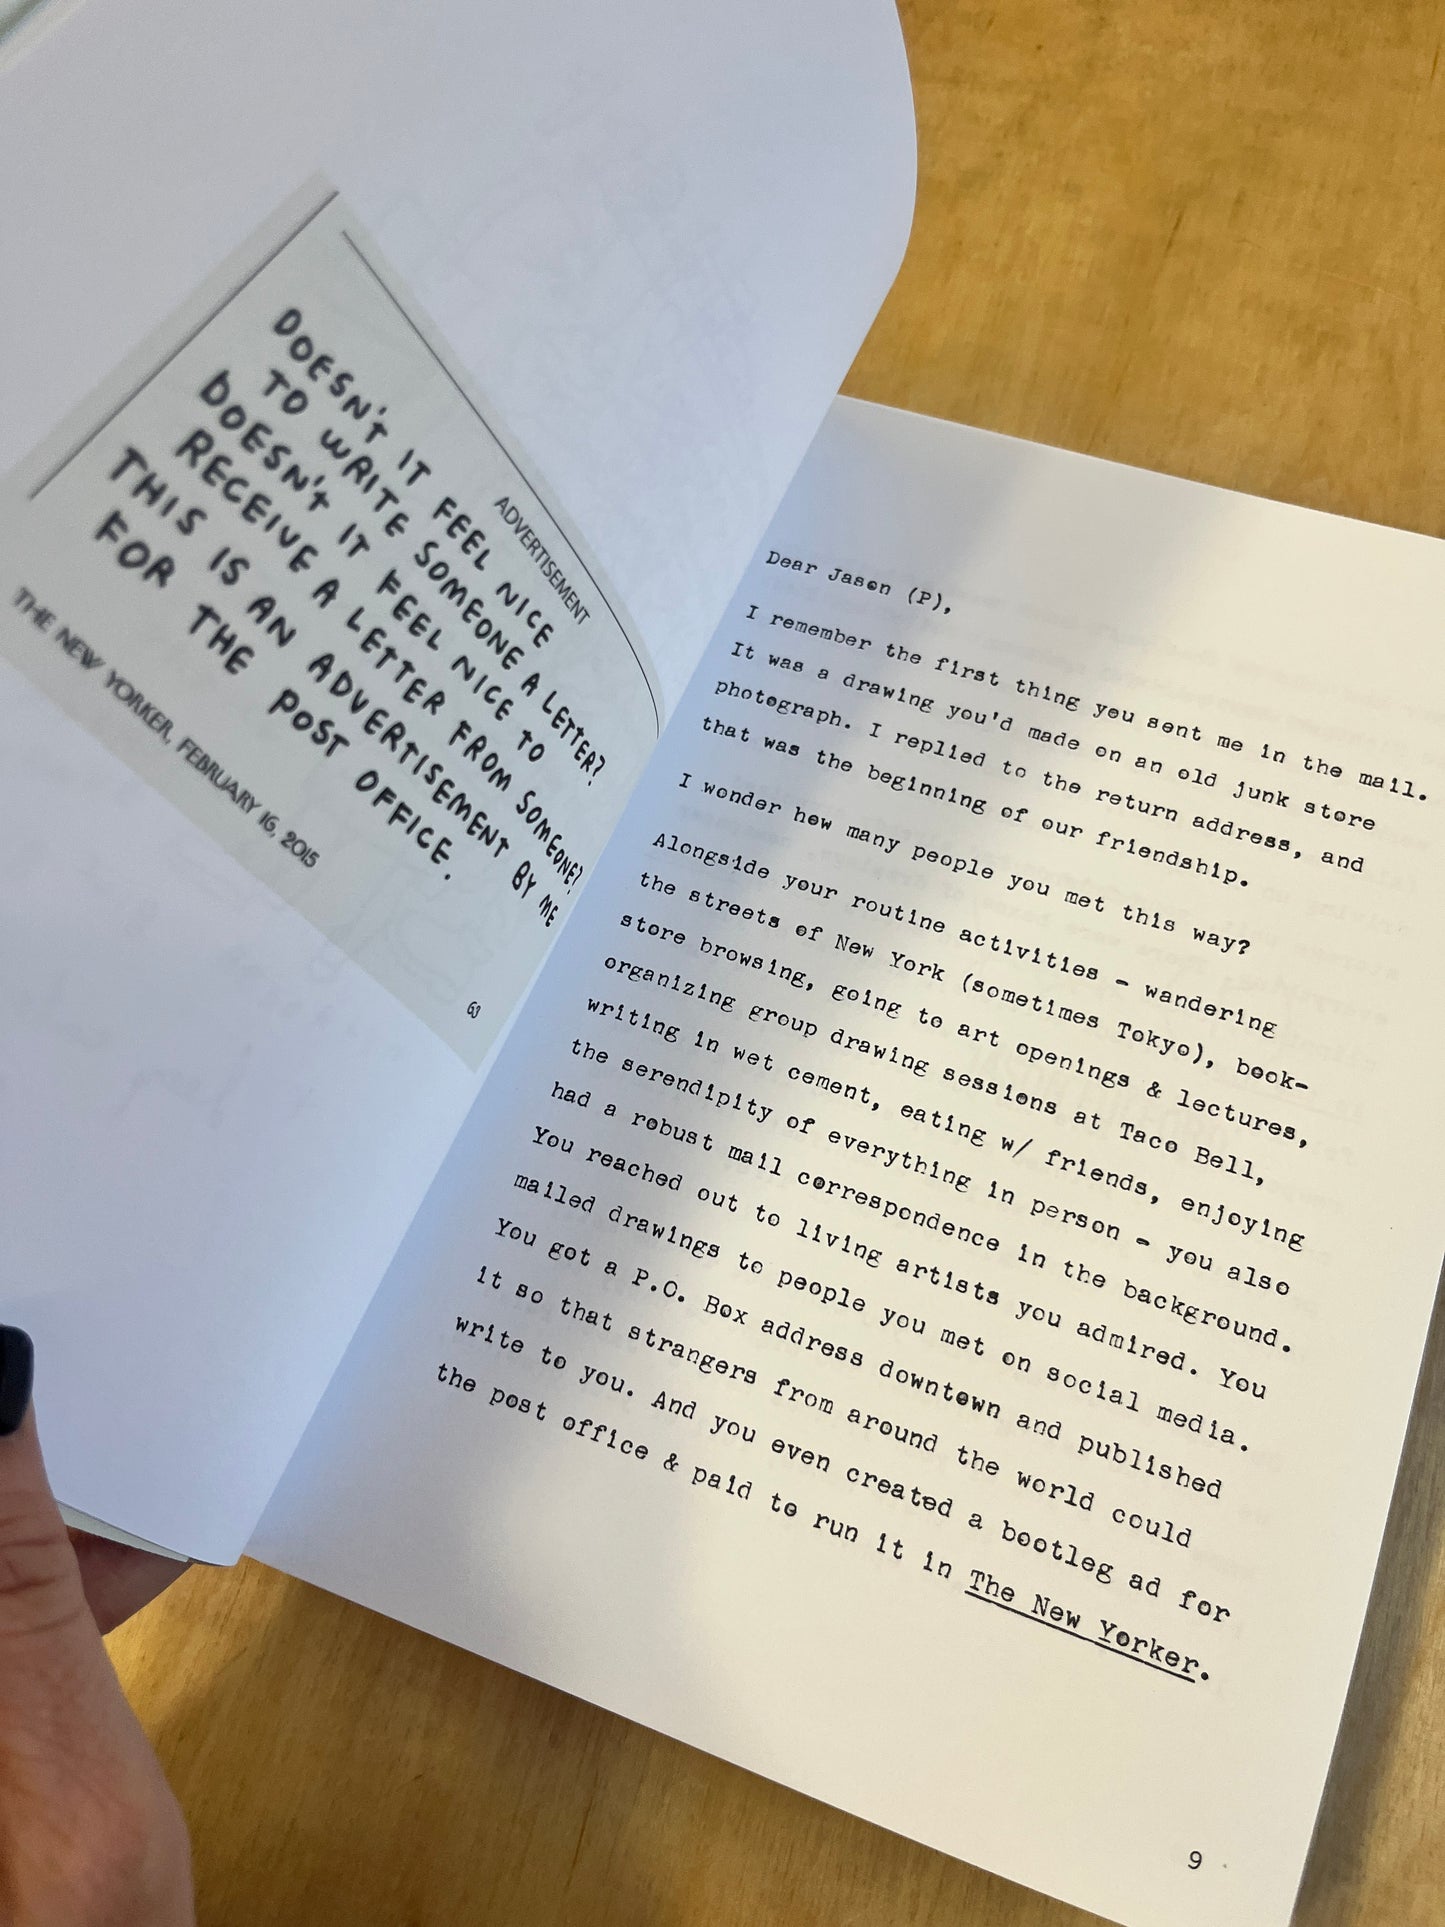 ADVERTISEMENT
DOESN'T IT FEEL NICE
TO WRITE SOMEONE A LETTER?
DOESN'T IT FEEL NICE TO
RECEIVE A LETTER FROM SOMEONE?
THIS IS AN ADVERTISEMENT BY ME
FOR THE POST OFFICE.
THE NEW YORKER, FEBRUARY 16, 2015
63
Dear Jason (P),
I remember the first thing you sent me in the mail.
It was a drawing you'd made on an old junk store
photograph. I replied to the return address, and
that was the beginning of our friendship.
I wonder how many people you met this way?
Alongside your routine activities - wandering
the streets of New York (sometimes Tokyo), book-
store browsing, going to art openings & lectures,
organizing group drawing sessions at Taco Bell,
writing in wet cement, eating w/ friends, enjoying
the serendipity of everything in person - you also
had a robust mail correspondence in the background.
You reached out to living artists you admired. You
mailed drawings to people you met on social media.
You got a P.O. Box address downtown and published
it so that strangers from around the world could
write to you. And you even created a bootleg ad for
the post office & paid to run it in The New Yorker.
9